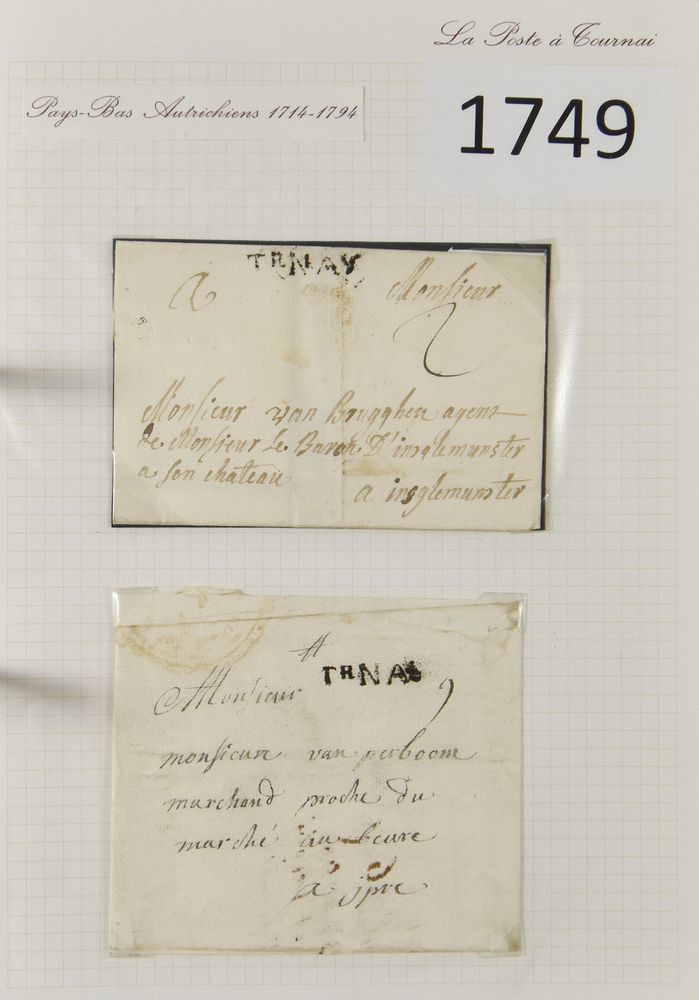 La Poste à Tournai
Pays-Bas Autrichiens 1714-1794
1749
TRNAY
a Monsieur
2
Monsieur van Brugghen agent
de Monsieur Le Baron D'insglemunster
a son chateau
a insglemunster
TRNAY
Monsieur
monsieur van perboom
marchand proche du
marché au beure
a jpre